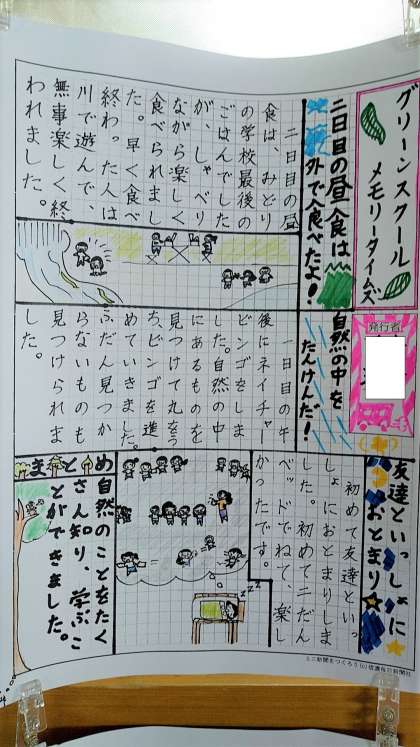 グリーンスクール
メモリータイムズ
発行者
二日目の昼食は
外で食べたよ！
二日目の昼
食は、みどり
の学校最後の
ごはんでした
が、しゃべり
ながら楽しく
食べられまし
た。早く食べ
終わった人は
川で遊んで、
無事楽しく終
われました。
自然の中を
たんけんだ！
一日目の午
後にネイチャー
ビンゴをしま
した。自然の中
にあるものを
見つけて丸をう
ち、ビンゴを進
めていきました。
ふだん見つか
らないものも
見つけられま
した。
友達といっしょに
おとまり
初めて友達といっ
しょにおとまりしま
した。初めて二だん
ベッドでねて、楽し
かったです。
zzz
まとめ
自然のことをたく
さん知り、学ぶこ
とができました。
ミニ新聞をつくろう(C)信濃毎日新聞社